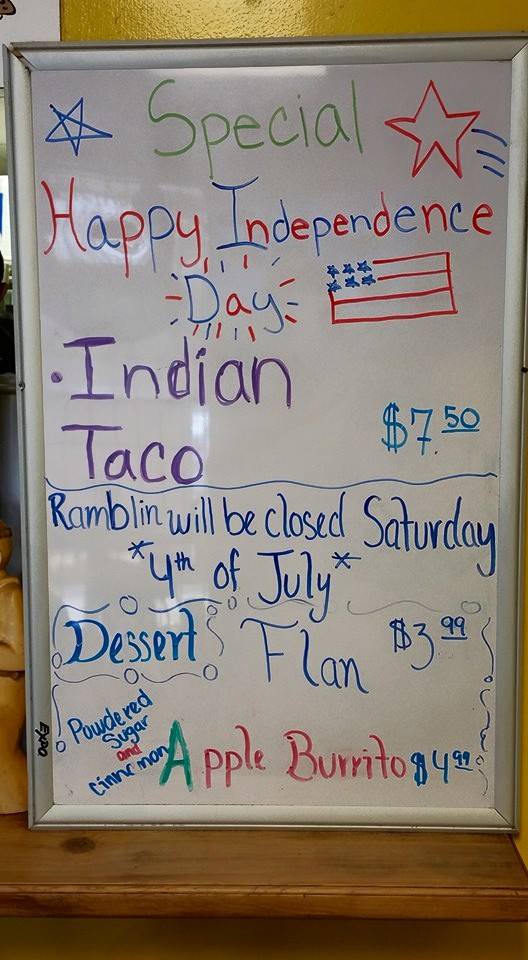 Special
Happy Independence
Day
• Indian
Taco
$7.50
Ramblin will be closed Saturday
*4th of July*
Dessert
Flan
$3.99
Powdered
Sugar
and
Cinnamon
Apple Burrito $4.99
EXPO